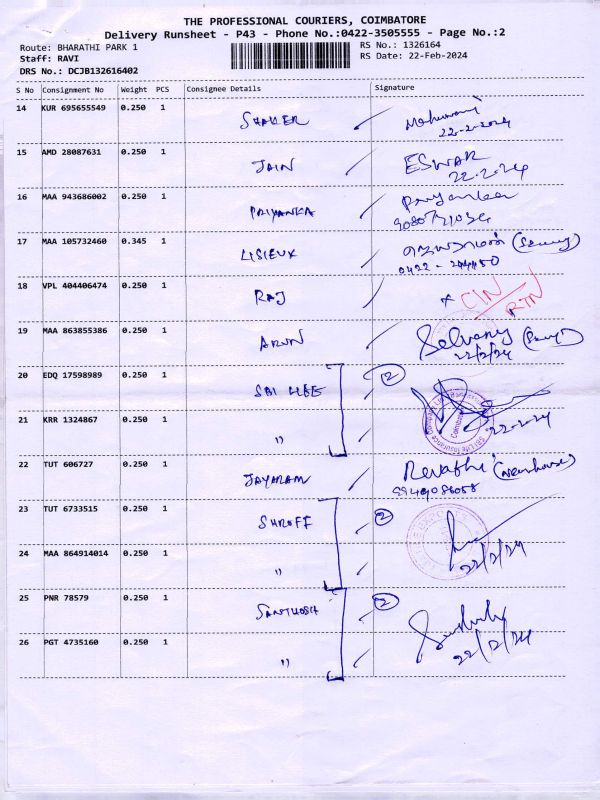 THE PROFESSIONAL COURIERS, COIMBATORE
Delivery Runsheet - P43 - Phone No.:0422-3505555 - Page No.:2
Route: BHARATHI PARK 1 RS No.: 1326164
Staff: RAVI RS Date: 22-Feb-2024
DRS No.: DCJB132616402
S No Consignment No Weight PCS Consignee Details Signature
14 KUR 695655549 0.250 1 SHAKER
22-2-2024
15 AMD 28087631 0.250 1 JAIN ESWAR
22.2.24
16 MAA 943686002 0.250 1 PRIYANKA Priyanka
17 MAA 105732460 0.345 1 LISIEUX
18 VPL 404406474 0.250 1 RAJ x CIN/
RTN
19 MAA 863855386 0.250 1 ARUN
22/2/24
20 EDQ 17598989 0.250 1 SBI LIFE 2
21 KRR 1324867 0.250 1 " 22-2-24
SBI Life Insurance Company Limited
Coimbatore
22 TUT 606727 0.250 1 JAYARAM Revathi
23 TUT 6733515 0.250 1 SHROFF 2
24 MAA 864914014 0.250 1 " 22/2/24
25 PNR 78579 0.250 1 SANTHOSH 2
26 PGT 4735160 0.250 1 " 22/2/24